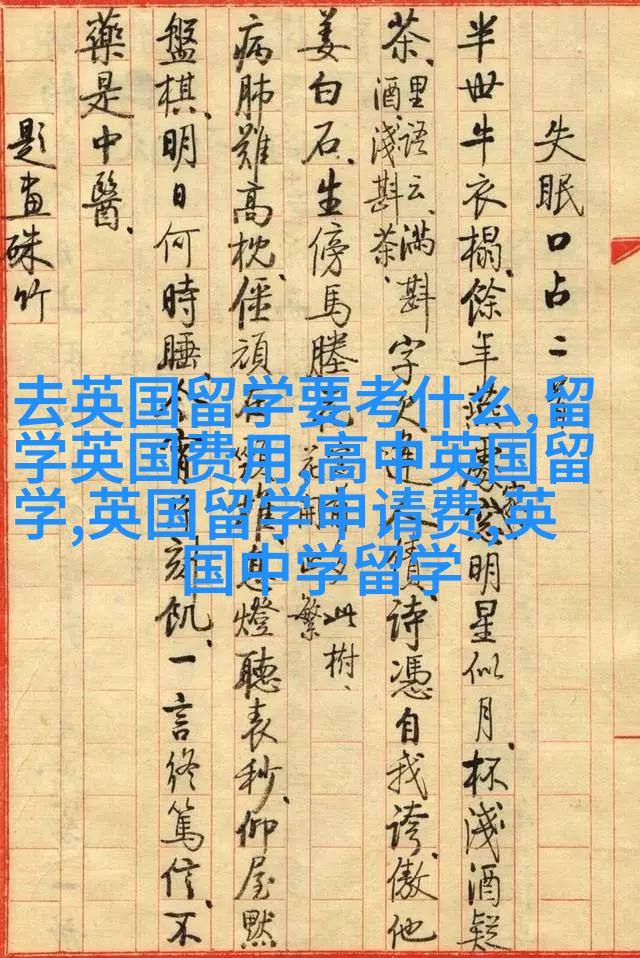 失眠口占二
半世牛衣榻、餘年燕處明星似月、杯淺酒疑
茶、里語云、滿斟酒、淺斟茶、字債、詩憑自我誇、傲他
姜白石、生傍馬塍花此樹、繁
病肺難高枕、僵頑息燈聽表秒、仰屋默
盤棋、明日何時睡、刻飢、一言終篤信、不
藥是中醫、
題畫硃竹
去英国留学要考什么,留
学英国费用,高中英国留
学,英国留学申请费,英
国中学留学